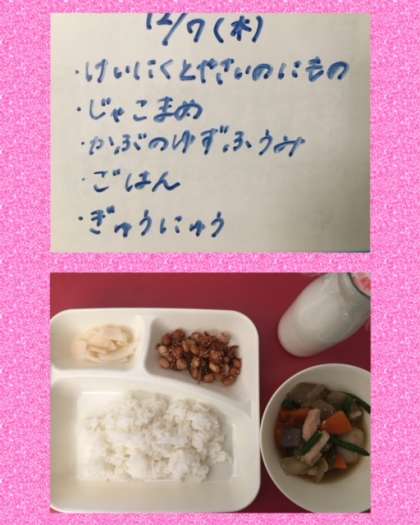 12/7(木)
・けいにくとやさいのにもの
・じゃこまめ
・かぶのゆずふうみ
・ごはん
・ぎゅうにゅう